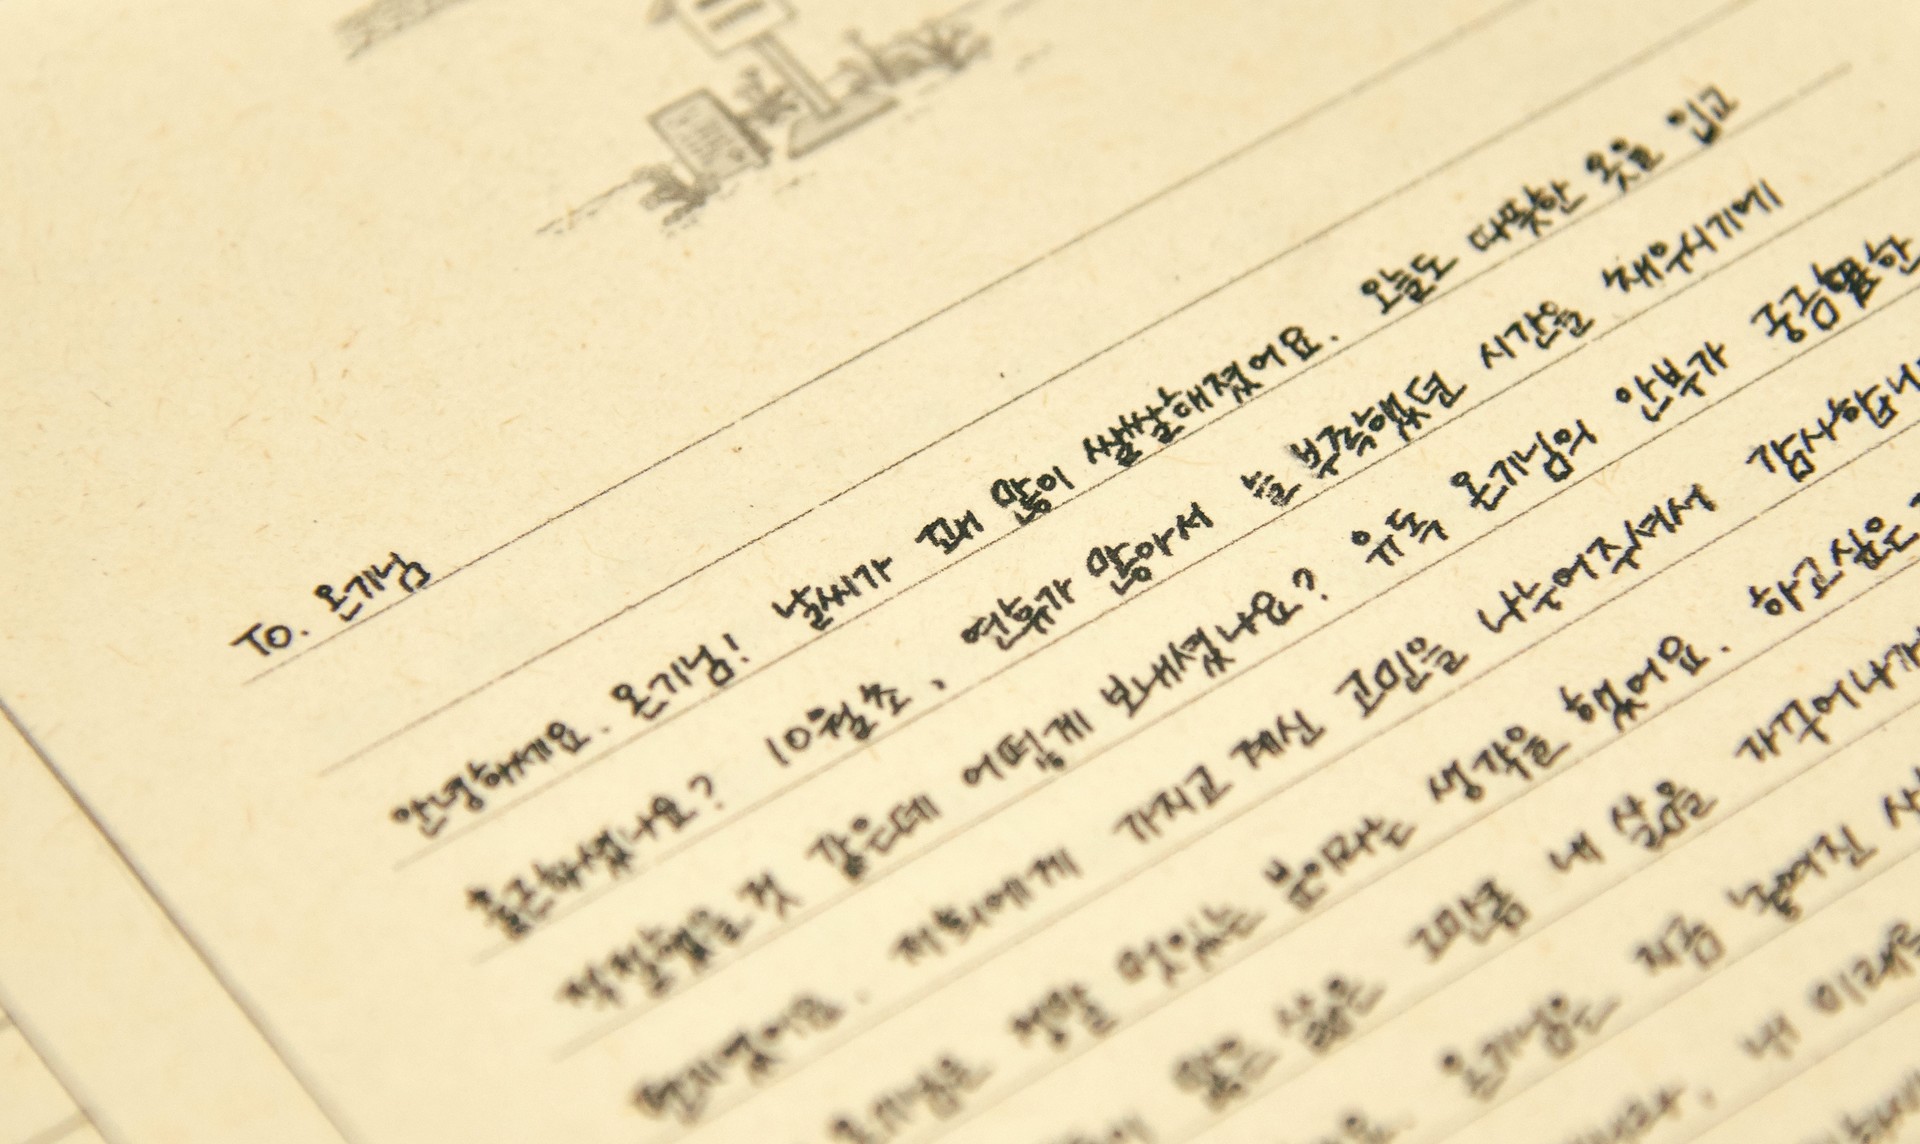 To. 온기님
안녕하세요. 온기님! 날씨가 꽤 많이 쌀쌀해졌어요. 오늘도 따뜻한 옷을 입고
출근하셨나요? 10월 초, 연휴가 많아서 늘 부족했던 시간을 채우시기에
적절했을 것 같은데 어떻게 보내셨나요? 유독 온기님의 안부가 궁금한
편지였어요. 저희에게 가지고 계신 고민을 나누어주셔서 감사합니
온기님은 정말 멋있는 분이라는 생각을 했어요. 하고싶은
싶은 삶은 고민은 내 삶을 가꾸어나가
온기님은 지금 놓여진
내 미래를